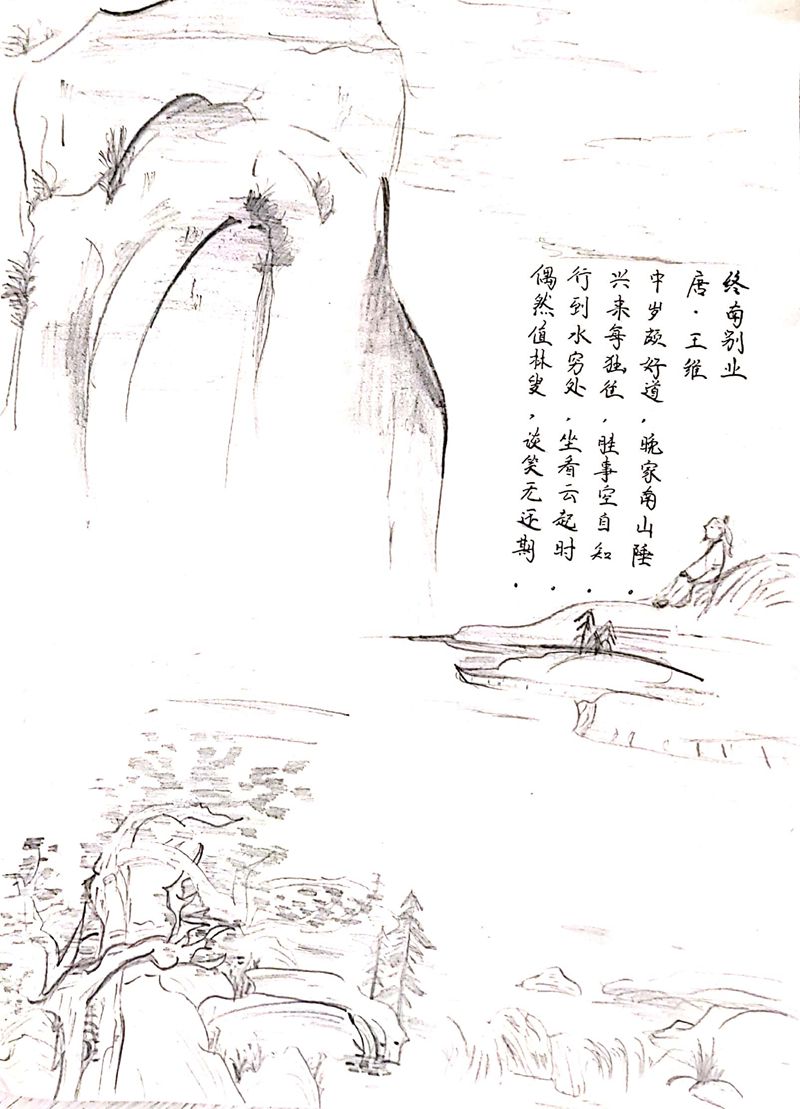 终南别业
唐·王维
中岁颇好道，晚家南山陲。
兴来每独往，胜事空自知。
行到水穷处，坐看云起时。
偶然值林叟，谈笑无还期。